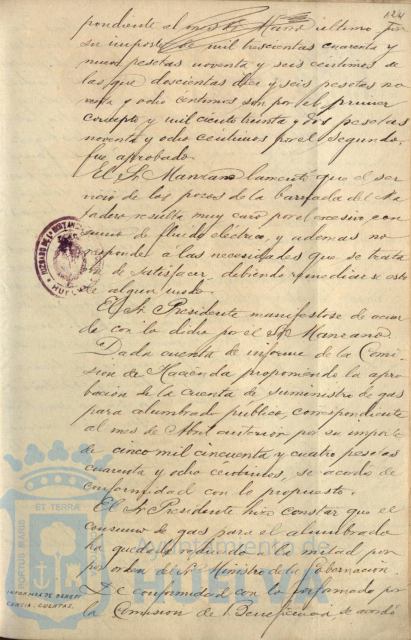 124
pondiente al mes de Marzo último por
su importe de mil trescientas cuarenta y
nueve pesetas noventa y seis centimos de
las que doscientas diez y seis pesetas no
venta y ocho centimos son por el primer
concepto y mil ciento treinta y dos pesetas
noventa y ocho centimos por el segundo,
fue aprobado.
El Sr. Manzano lamenta que el ser
vicio de los pozos de la barriada del Ma
tadero resulta muy caro por el excesivo con
sumo de fluido eléctrico, y ademas no
responder a las necesidades que se trata
de satisfacer, debiendo remediarse esto
de algun modo.
El Sr. Presidente manifestose de acuer
do con lo dicho por el Sr. Manzano.
Dada cuenta de informe de la Comi
sion de Hacienda proponiendo la apro
bacion de la cuenta de suministro de gas
para alumbrado publico, correspondiente
al mes de Abril anterior por su importe
de cinco mil cincuenta y cuatro pesetas
cuarenta y ocho centimos, se acordó de
conformidad con lo propuesto.
El Sr. Presidente hizo constar que el
consumo de gas para el alumbrado
ha quedado reducido a la mitad por
orden del Sr. Ministro de la Gobernación.
INFORMES DE BENEFI
CENCIA. CUENTAS.
De conformidad con lo informado por
la Comision de Beneficencia se acordó
PORTUS MARIS ET TERRAE
Ayuntamiento de
HUELVA